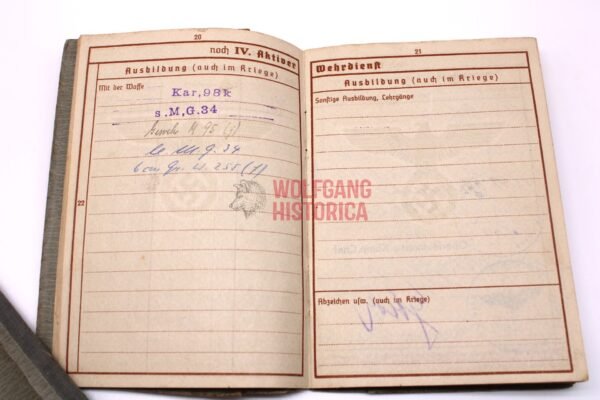 20
noch IV. Aktiver
Ausbildung (auch im Kriege)
Mit der Waffe
Kar,98k
s.M,G.34
Gewehr M 95 (j)
le M. G. 34
6 cm Gr. W. 255 (f)
22
WOLFGANG
HISTORICA
21
Wehrdienst
Ausbildung (auch im Kriege)
Sonstige Ausbildung, Lehrgänge
Abzeichen usw. (auch im Kriege)